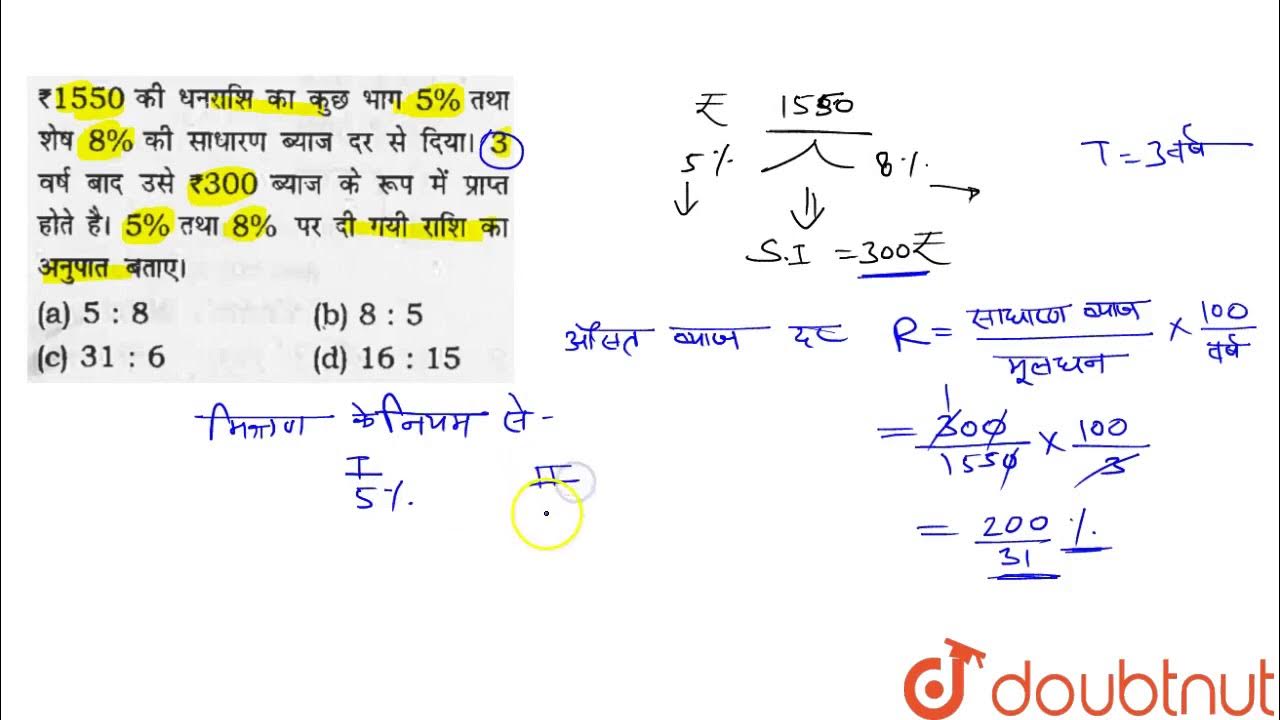 ₹1550 की धनराशि का कुछ भाग 5% तथा
शेष 8% की साधारण ब्याज दर से दिया। 3
वर्ष बाद उसे ₹300 ब्याज के रूप में प्राप्त
होते है। 5% तथा 8% पर दी गयी राशि का
अनुपात बताए।
(a) 5 : 8 (b) 8 : 5
(c) 31 : 6 (d) 16 : 15
₹ 1550
5% 8%
T = 3 वर्ष
S.I = 300₹
औसत ब्याज दर R = साधारण ब्याज / मूलधन × 100 / वर्ष
= 300 / 1550 × 100 / 3
1
= 200 / 31 %
मिश्रण के नियम से -
I II
5%
doubtnut